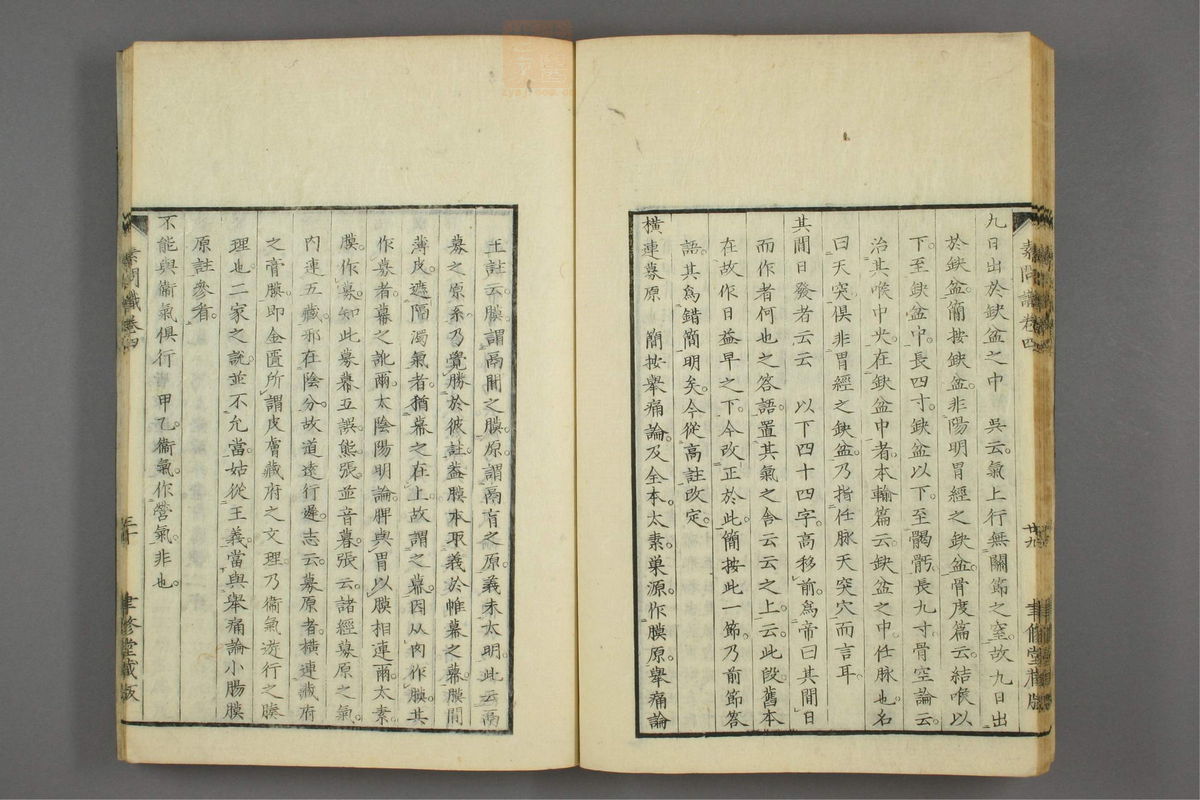 九日出於缺盆之中 吳云。氣上行無關節之窒。故九日出
於缺盆。簡按缺盆。非陽明胃經之缺盆。骨度篇云。結喉以
下。至缺盆中。長四寸。缺盆以下。至𩩲骬。長九寸。骨空論云。
治其喉中央。在缺盆中者。本輸篇云。缺盆之中。任脉也。名
曰天突。俱非胃經之缺盆。乃指任脉天突穴而言耳
其間日發者云云 以下四十四字。高移前。爲帝曰其間日
而作者何也之答語。置其氣之舍云云之上。云。此段舊本
在故作日益早之下。今改正於此。簡按此一節。乃前節答
語。其爲錯簡明矣。今從高註改定。
橫連募原 簡按舉痛論。及全本。太素。巢源。作膜原。舉痛論
王註云。膜。謂鬲間之膜。原。謂鬲肓之原。義未太明。此云鬲
募之原系。乃覺勝於彼註。盖膜本取義於帷幕之幕。膜間
薄皮。遮隔濁氣者。猶幕之在上。故謂之幕。因从肉作膜。其
作募者。幕之訛爾。太陰陽明論。脾與胃以膜相連爾。太素
膜。作募。知此募幕互誤。熊張並音暮。張云。諸經募原之氣。
內連五藏。邪在陰分。故道遠行遲。志云。募原者。橫連藏府
之膏膜。即金匱所謂皮膚藏府之文理。乃衞氣遊行之腠
理也。二家之說並不允當。姑從王義。當與舉痛論小腸膜
原註參看。
不能與衞氣俱行 甲乙。衞氣。作營氣。非也。
素問識卷四
廿九
聿修堂藏版
素問識卷四
三十
聿修堂藏版